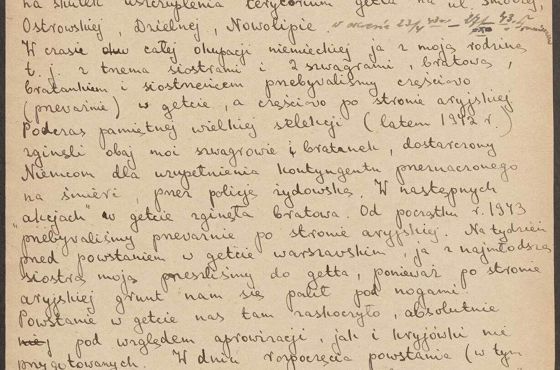 na skutek uszczuplenia terytorium getta na ul. Smoczej,
Ostrowskiej, Dzielnej, Nowolipie.
W czasie całej okupacji niemieckiej ja z moją rodziną
t. j. z trzema siostrami i 2 szwagrami, bratową,
bratankiem i siostrzeńcem przebywaliśmy częściowo
(przeważnie) w getcie, a częściowo po stronie aryjskiej
Podczas pamiętnej wielkiej selekcji (latem 1942 r.)
zginęli obaj moi szwagrowie i bratanek, dostarczony
Niemcom dla uzupełnienia kontyngentu przeznaczonego
na śmierć, przez policję żydowską. W następnych
"akcjach" w getcie zginęła bratowa. Od początku r. 1943
przebywaliśmy przeważnie po stronie aryjskiej. Na tydzień
przed powstaniem w getcie warszawskim, ja z najmłodszą
siostrą moją przeszliśmy do getta, ponieważ po stronie
aryjskiej grunt nam się palił pod nogami.
Powstanie w getcie nas tam zaskoczyło, absolutnie
pod względem aprowizacji, jak i kryjówki nie
przygotowanych. W dniu rozpoczęcia powstania (w tym